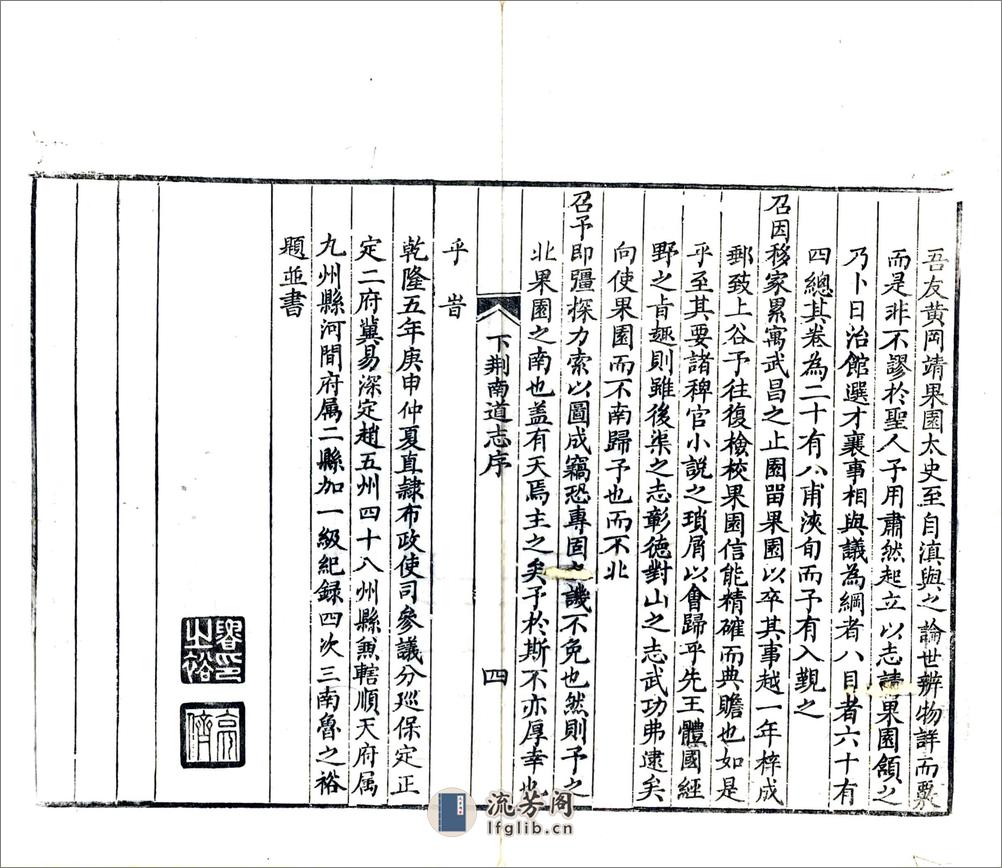 吾友黄岡靖果園太史至自滇與之論世辨物詳而覈
而是非不謬於聖人予用肅然起立以志請果園頷之
乃卜日治館選才襄事相與議為綱者八目者六十有
四總其卷為二十有八甫浹旬而予有入覲之
召因移家累寓武昌之止園畱果園以卒其事越一年梓成
郵致上谷予往復檢校果園信能精確而典贍也如是
乎至其要諸稗官小説之瑣屑以會歸乎先王體國經
野之肯趣則雖後渠之志彰德對山之志武功弗逮矣
向使果園而不南歸予也而不北
召予即彊探力索以圖成竊恐專固之譏不免也然則予之
北果園之南也盖有天焉主之矣予於斯不亦厚幸也
下荆南道志序
四
乎 旹
乾隆五年庚申仲夏直隸布政使司參議分廵保定正
定二府冀易深定趙五州四十八州縣兼轄順天府属
九州縣河間府属二縣加一級紀録四次三南魯之裕
題並書
魯之裕印
亮儕
流芳阁
lfglib.cn